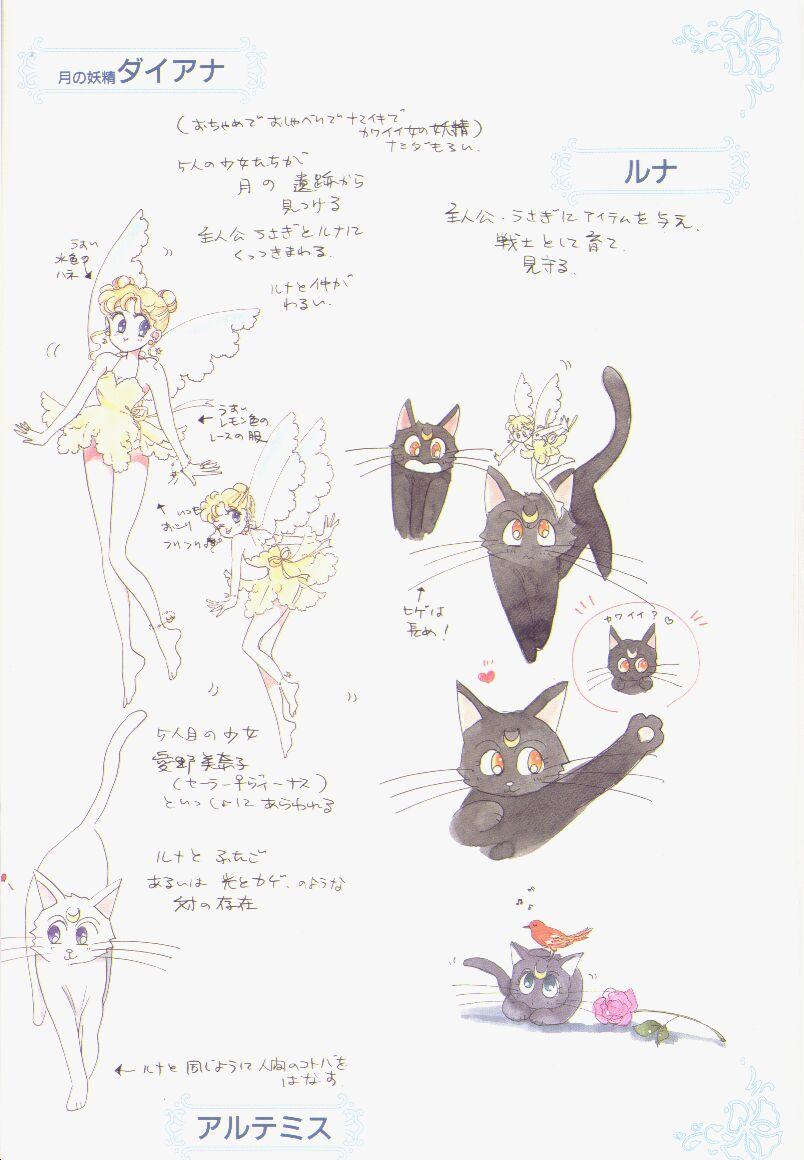 月の妖精ダイアナ
(おちゃめで おしゃべりで ナマイキで
カワイイ女の妖精)
ナミダもろい.
5人の少女たちが
月の 遺跡から
見つける
主人公 うさぎとルナに
くっつきまわる.
ルナと仲が
わるい.
うすい
水色の
ハネ
← うすい
レモン色の
レースの服
いつも
おこり
ルナ
主人公・うさぎにアイテムを与え.
戦士として育て.
見守る.
↑
ヒゲは
長め!
カワイイ?♡
5人目の少女
愛野美奈子
(セーラーVヴィーナス)
といっしょに あらわれる
ルナと ふたご
あるいは 光とカゲ.のような
対の存在
← ルナと 同じように人間のコトバを
はなす.
アルテミス